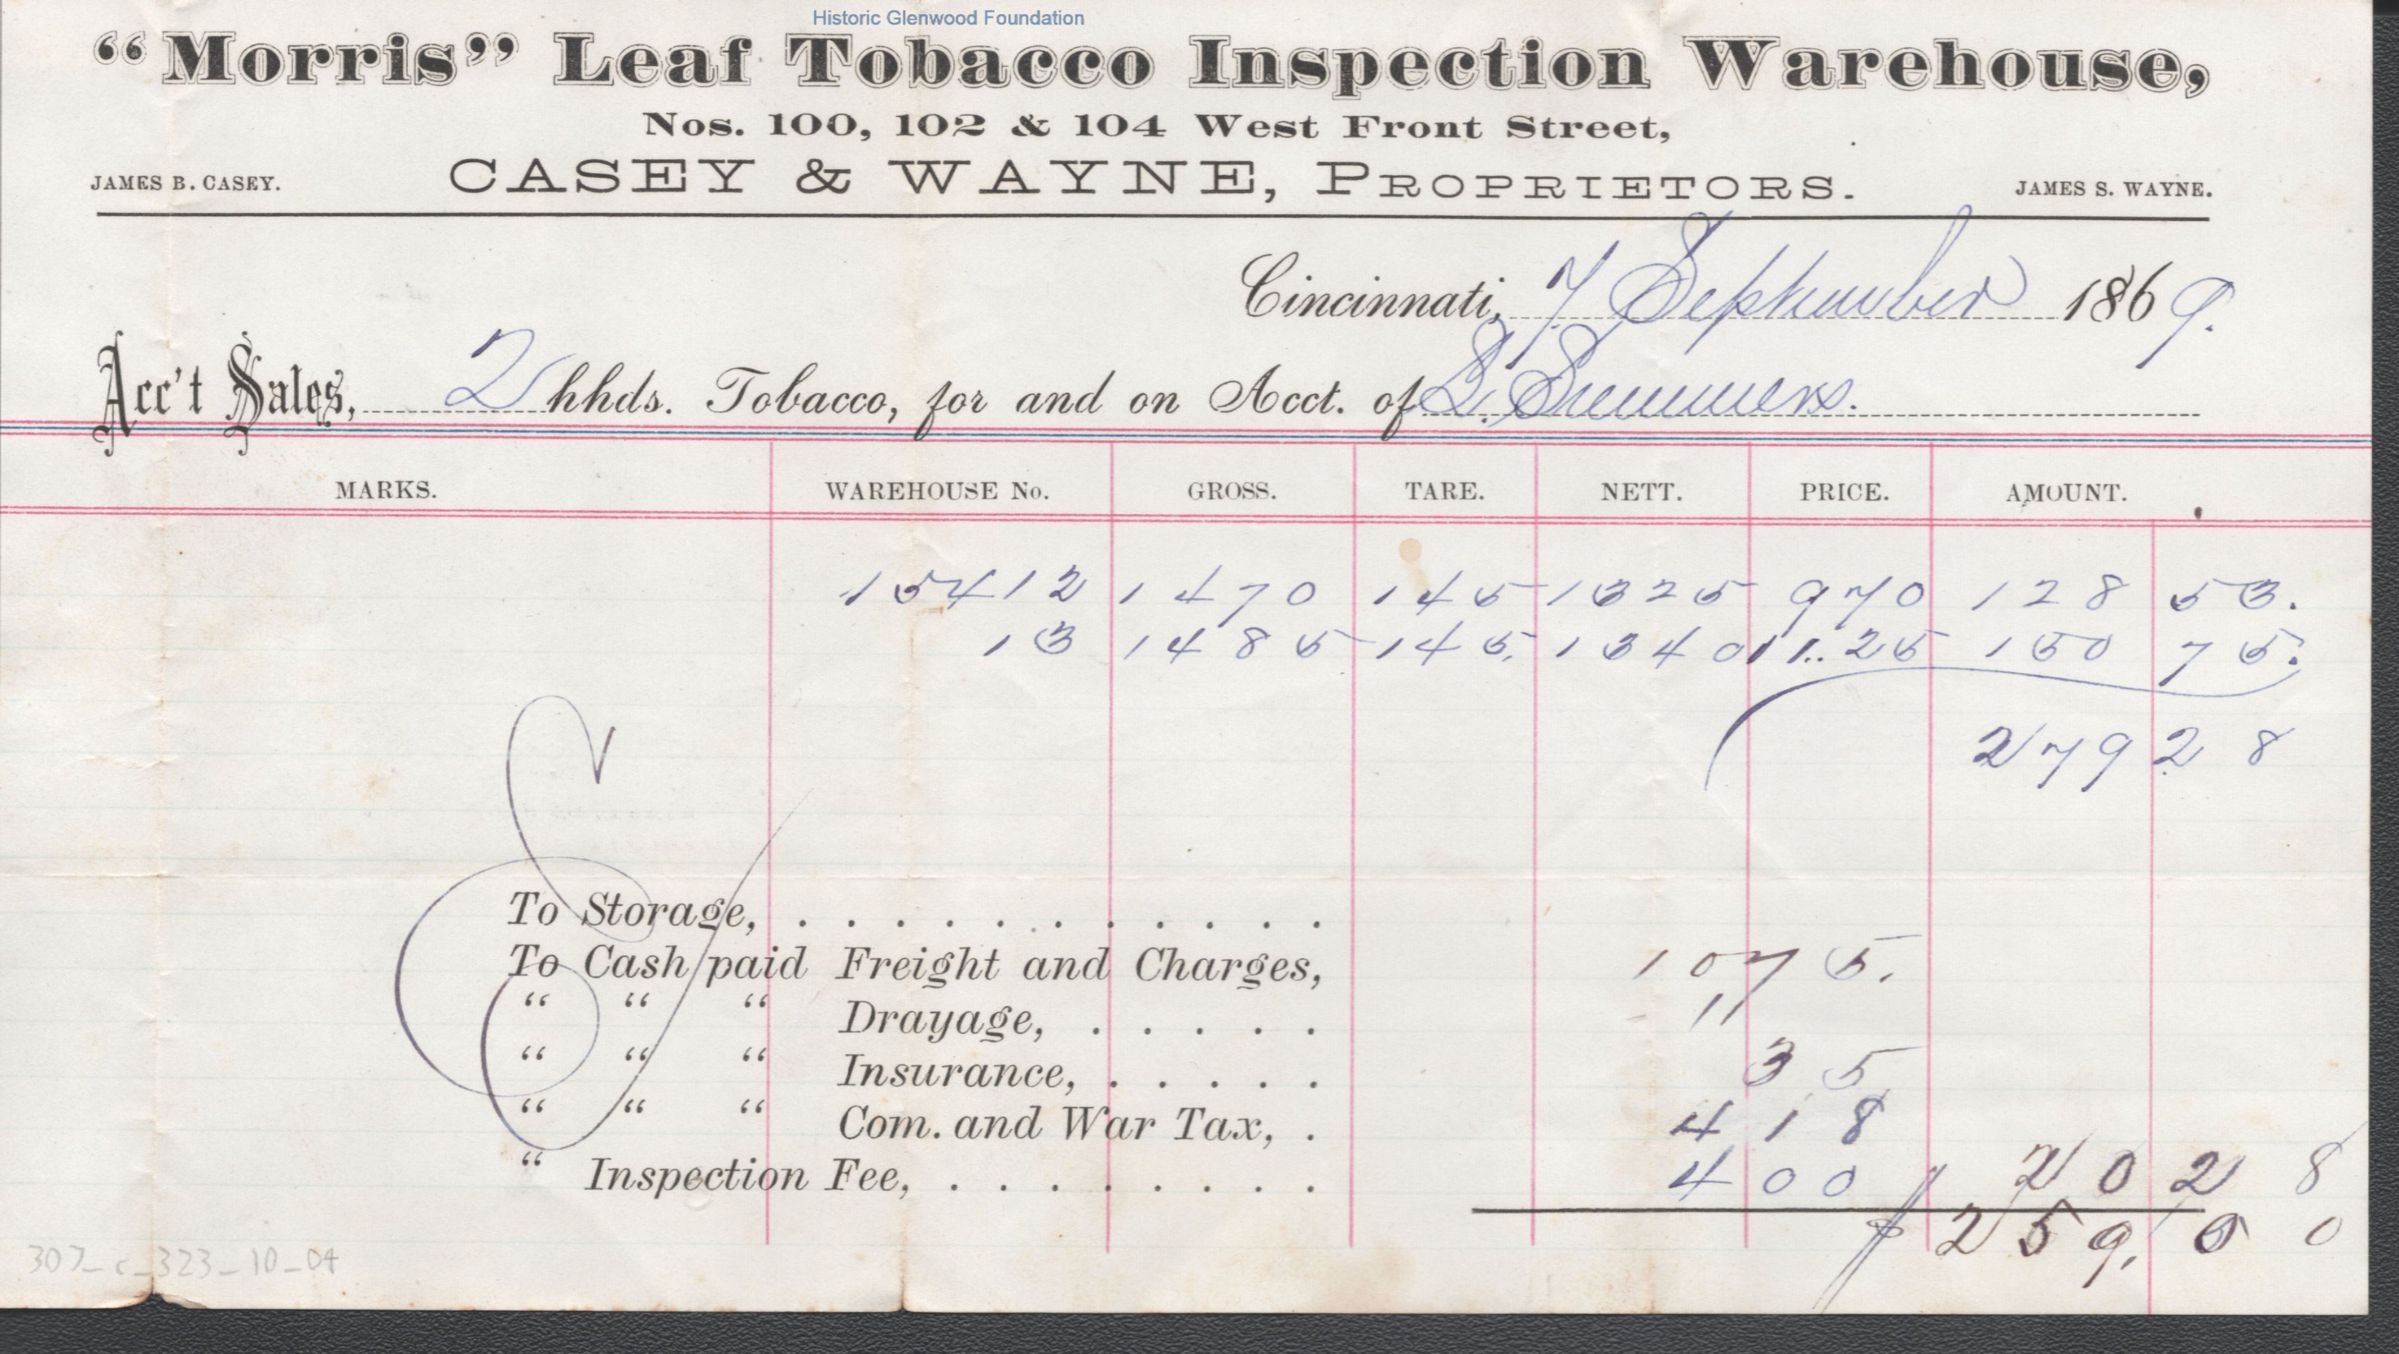 Historic Glenwood Foundation
"Morris" Leaf Tobacco Inspection Warehouse,
Nos. 100, 102 & 104 West Front Street,
JAMES B. CASEY. CASEY & WAYNE, PROPRIETORS. JAMES S. WAYNE.
Cincinnati, 7 September 1869.
Acc't Sales, 2 hhds. Tobacco, for and on Acct. of S. Summers.
MARKS. WAREHOUSE No. GROSS. TARE. NETT. PRICE. AMOUNT.
15412 1470 145 1325 970 128 53.
13 1485 145. 1340 11..25 150 75.
279 28
To Storage, . . . . . . . . . . .
To Cash paid Freight and Charges, 10 75.
" " " Drayage, . . . . . 1
" " " Insurance, . . . . . 35
" " " Com. and War Tax, . 4 18
" Inspection Fee, . . . . . . . . 4 00 20 28
$ 259.00
307_c_323_10_04